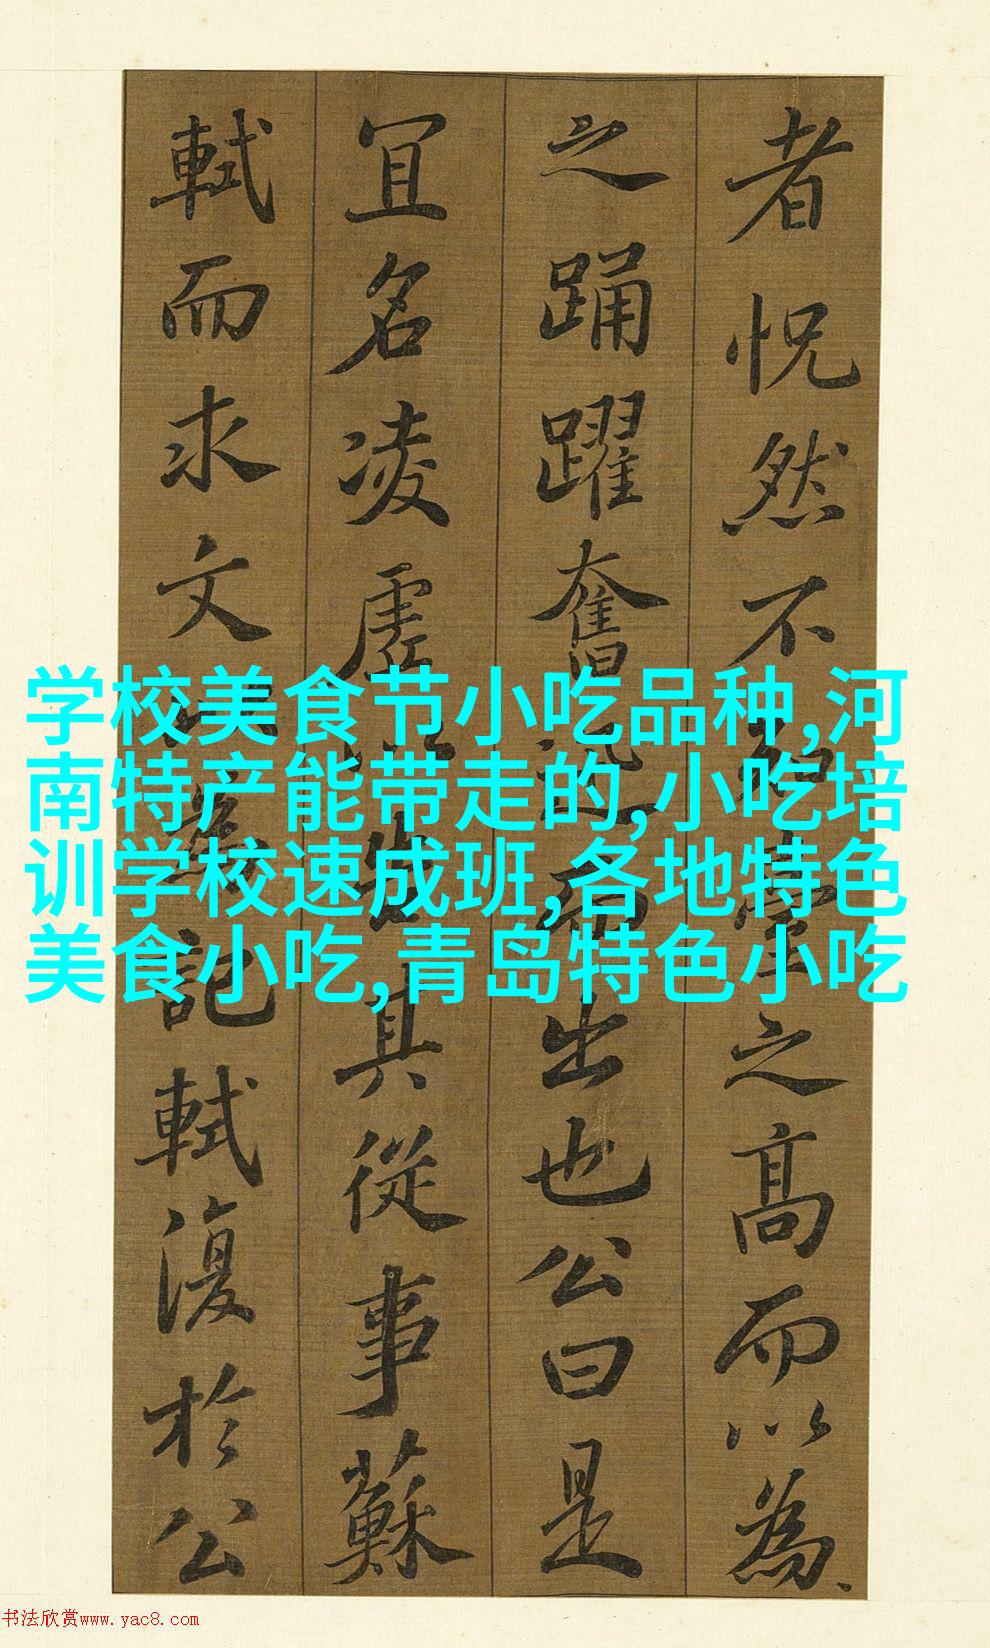 者怳然不知臺之高而以為
之踊躍奮迅而出也公曰是
宜名凌虛以告其從事蘇
軾而求文以為記軾復於公
学校美食节小吃品种,河
南特产能带走的,小吃培
训学校速成班,各地特色
美食小吃,青岛特色小吃
书法欣赏www.yac8.com